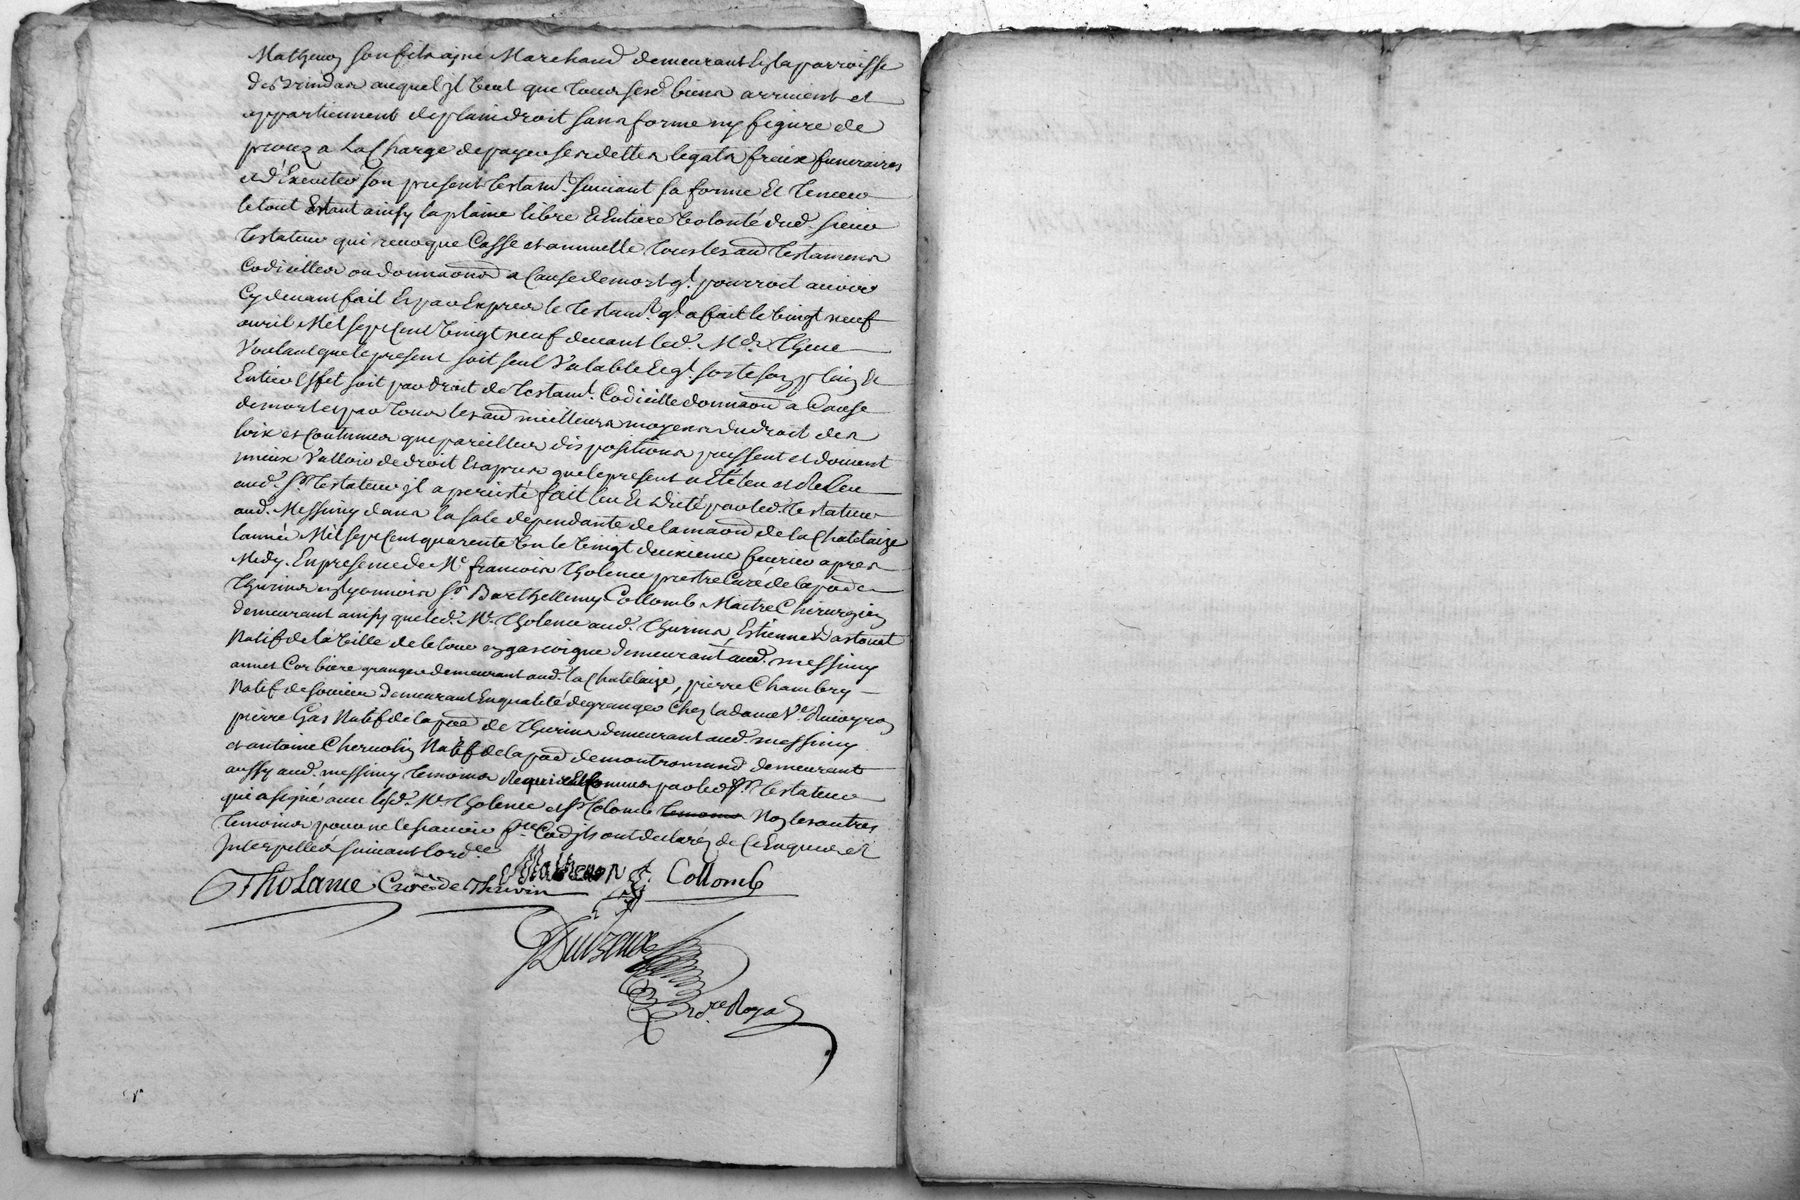 Mathevon son fils ainé Marchand demeurant en la parroisse
de Brindas auquel il veut que tous sesd. biens arrivent et
appartiennent de plain droit sans forme ny figure de
procez a La Charge de payer ses dettes legats fraix funeraires
et d'Executer son present testamt. suivant sa forme Et teneur
le tout Estant ainsy la plaine libre Et Entiere volonté dud. sieur
testateur qui revoque Casse et annulle tous les aud testamens
Codicilles ou donnaons a Cause de mort ql. pourroit avoir
Cy devant fait Et par Expres le testamt. ql. a fait le vingt neuf
avril Mil sept Cent vingt neuf devant led. Me.
Voulant que le present soit seul Valable Et ql. sorte son plein Et
Entier Effet soit par droit de testamt. Codicille donnaon a Cause
de mort et par tous les aud meilleurs moyens du droit des
loix et Coutumes que pareilles dispositions puissent et doivent
mieux Valloir de droit Et apres que le present a été leu et releu
aud. Sr. testateur il a peristé fait leu Et dicté par led. testateur
aud. Messimy dans la sale dependante de la maon de la Chatelaize
l'année Mil sept Cent quarente Un le vingt deuxieme fevrier apres
Midy. En presence de Me. francois tholence prestre Curé de la pad de
thurins en lyonnois Sr. Barthellemy Collomb Maitre Chirurgien
demeurant ainsy que led. Me. tholence aud. thurins, Estienne
Natif de la Ville de en gascoigne demeurant aud. messimy
annet Corbiere granger demeurant aud. la Chatelaize, pierre Chambry
Natif de demeurant En qualité de granger Chez la dame Ve.
pierre Gas Natif de la pad de thurins demeurant aud. messimy
et antoine Natif de la pad de montromand demeurant
aussy aud. messimy temoins Requis Et Connus par led. Sr. testateur
qui a signé avec lesd. Me. tholence et Sr. Colomb Non les autres
temoins pour ne le scavoir fre. Cad ils ont declaréz de Ce Enquis et
Interpellés suivant l'ordce.
Tholance Curé de Thurin Mathevon Collomb
re Royal